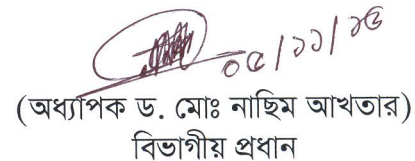 ০৫/১১/১৫
(অধ্যাপক ড. মোঃ নাছিম আখতার)
বিভাগীয় প্রধান